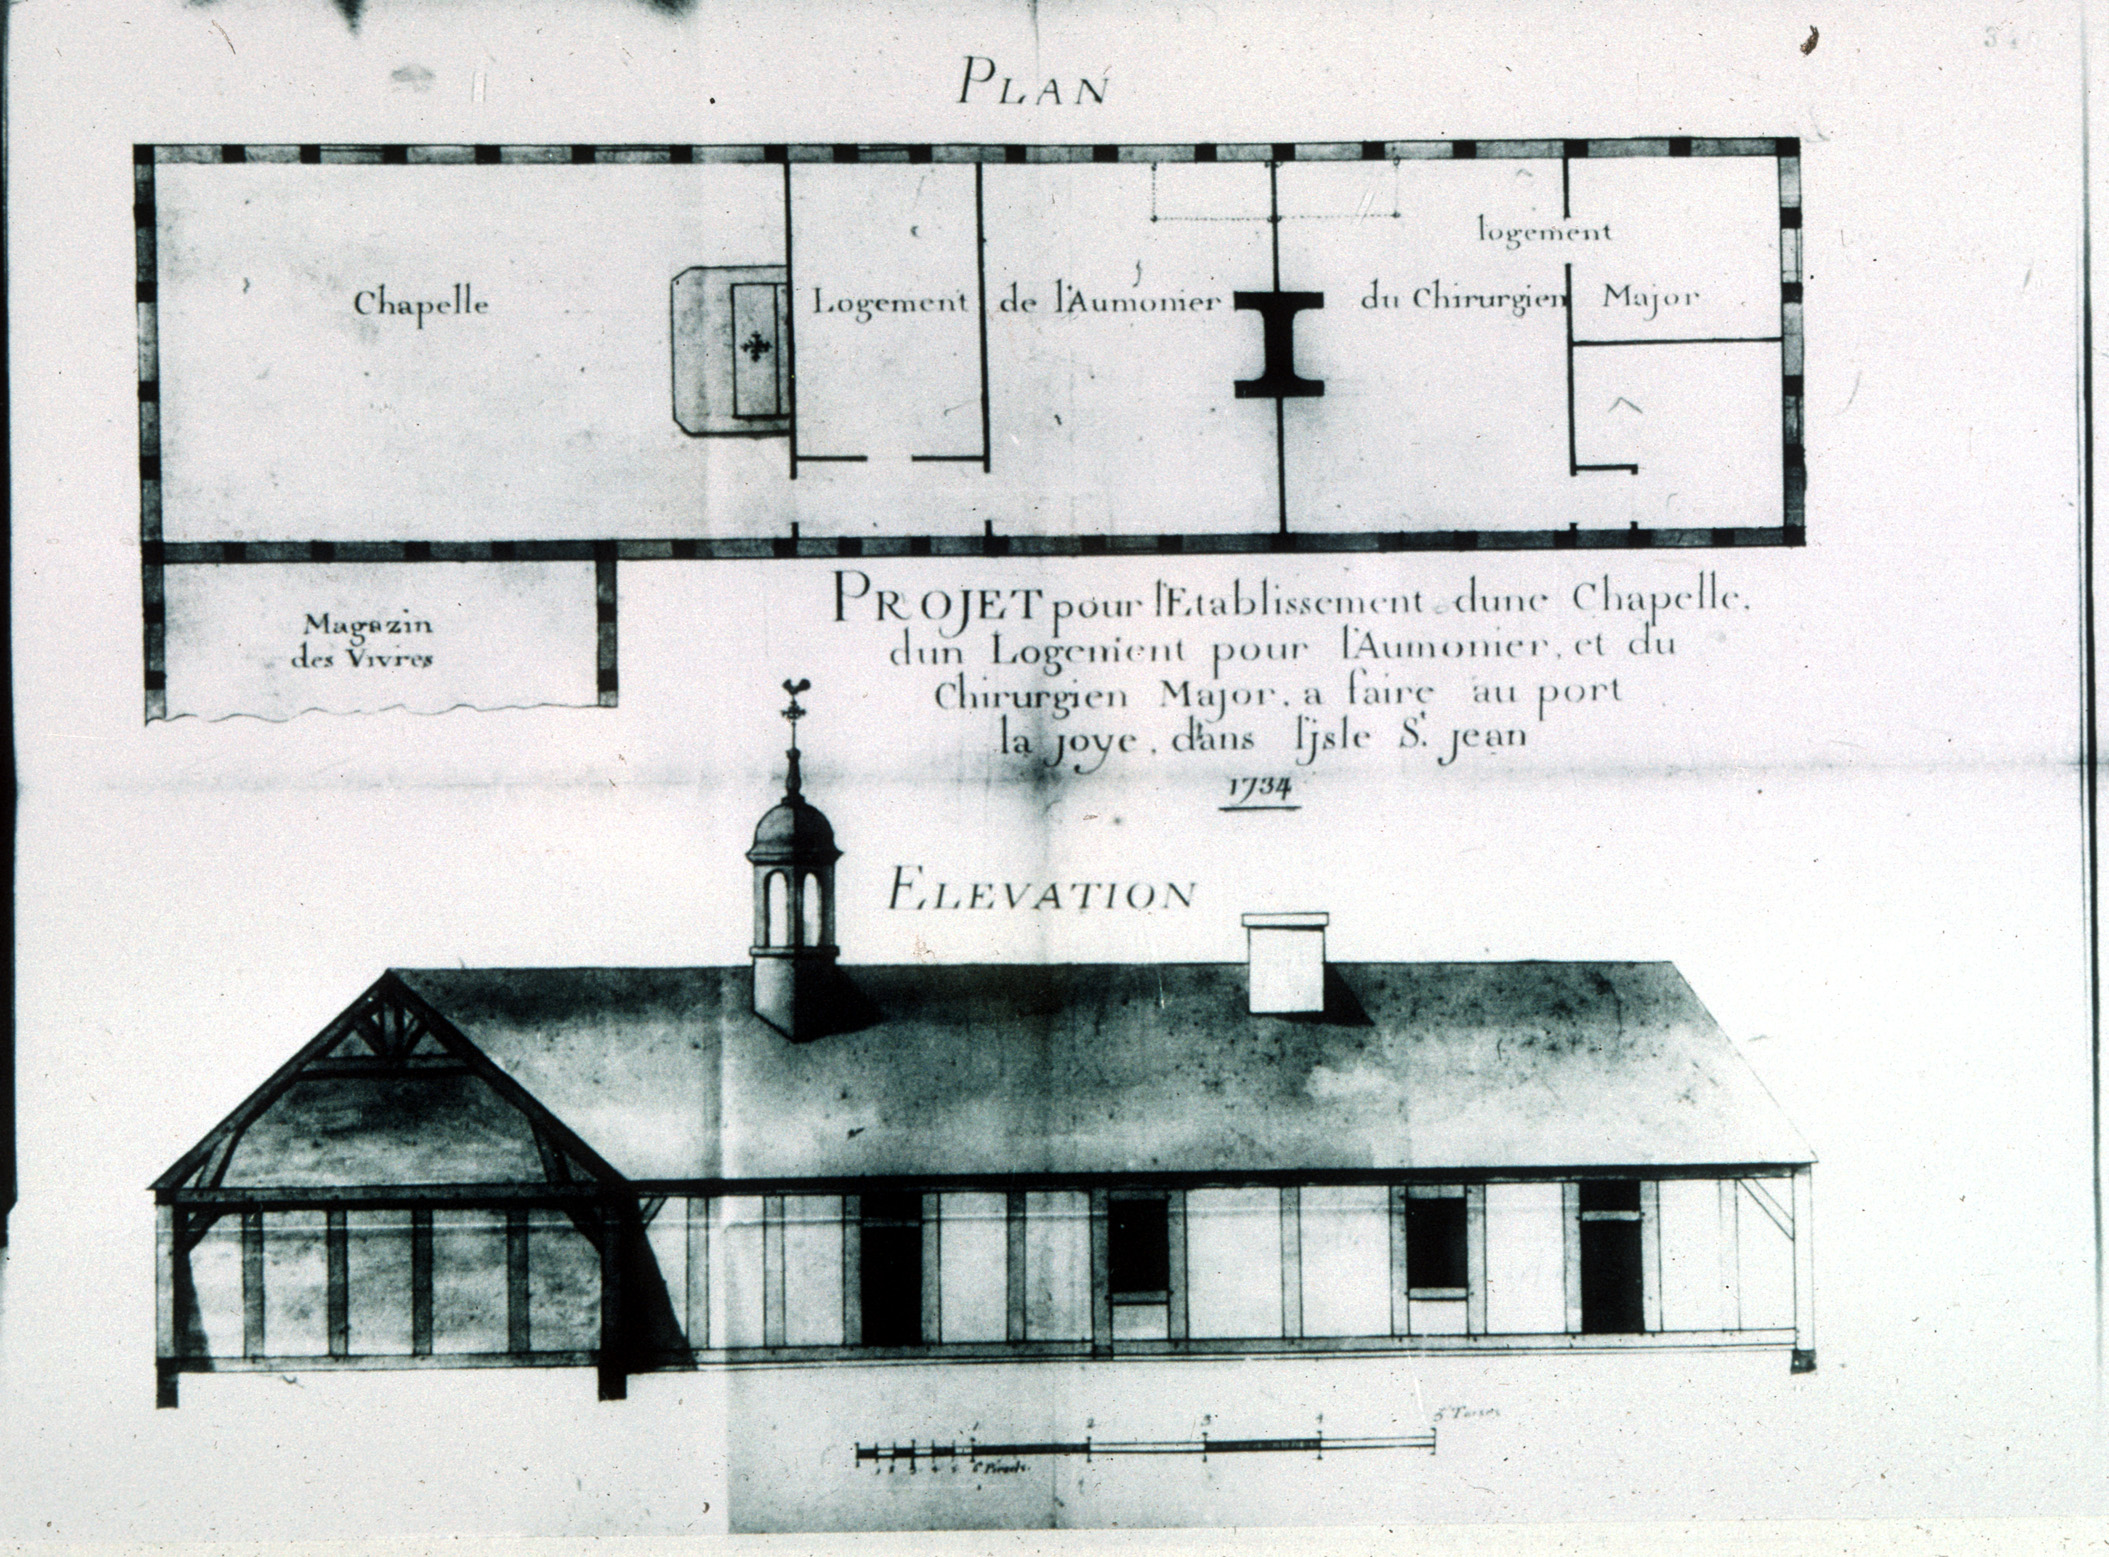 PLAN
Chapelle
Logement de l'Aumonier
logement
du Chirurgien Major
Magazin
des Vivres
PROJET pour l'Etablissement dune Chapelle.
dun Logement pour l'Aumonier, et du
Chirurgien Major, a faire au port
la joye, dans l'jsle St. jean
1734
ELEVATION
1 2 3 4 5 Toises
1 2 3 4 5 6 Pieds.